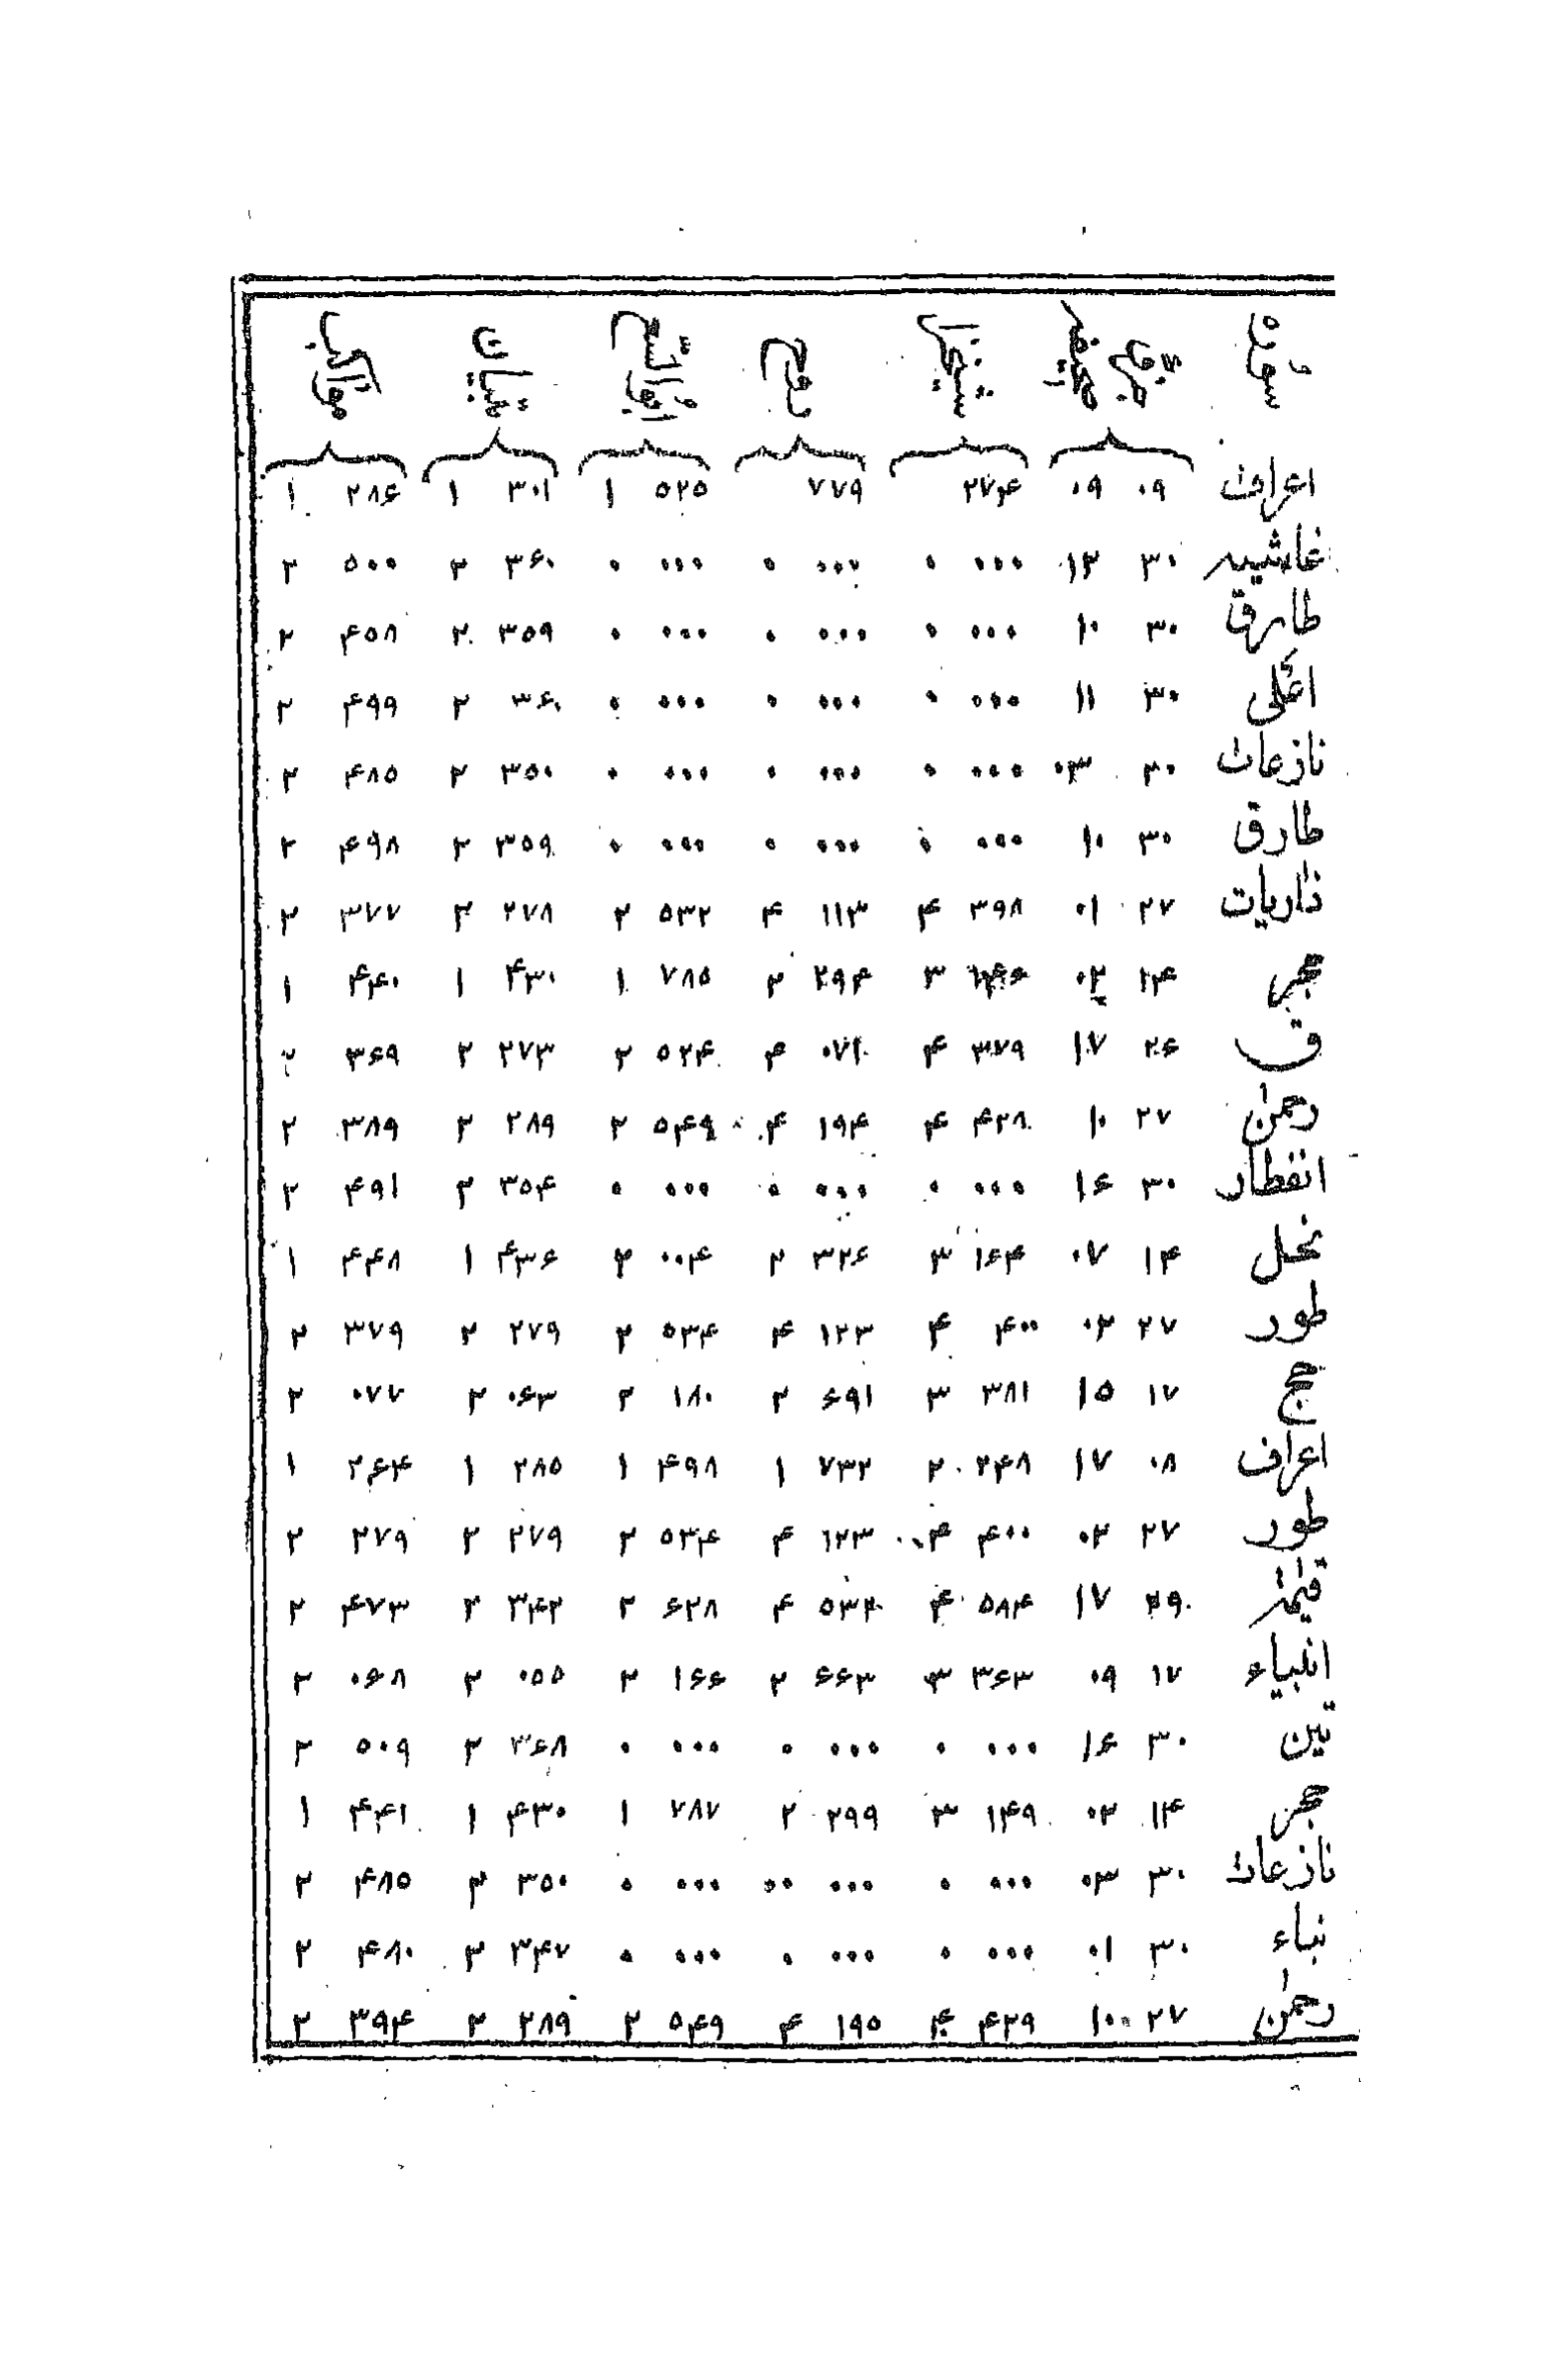 سوره
اعراف ۰۹ ۰۹ ۲۷۴ ۷۷۹ ۵۲۵ ۱ ۳۰۱ ۱ ۲۸۶ ۱
غاشیه ۳۰ ۱۳ ۰۰۰ ۰ ۰۰۰ ۰ ۰۰۰ ۰ ۳۶۰ ۲ ۵۰۰ ۲
طارق ۳۰ ۱۰ ۰۰۰ ۰ ۰۰۰ ۰ ۰۰۰ ۰ ۳۵۹ ۲ ۴۵۸ ۲
اعلی ۳۰ ۱۱ ۰۰۰ ۰ ۰۰۰ ۰ ۰۰۰ ۰ ۳۶۰ ۲ ۴۹۹ ۲
نازعات ۳۰ ۰۳ ۰۰۰ ۰ ۰۰۰ ۰ ۰۰۰ ۰ ۳۵۰ ۲ ۴۸۵ ۲
طارق ۳۰ ۱۰ ۰۰۰ ۰ ۰۰۰ ۰ ۰۰۰ ۰ ۳۵۹ ۲ ۴۹۸ ۲
ذاریات ۲۷ ۰۱ ۳۹۸ ۴ ۱۱۳ ۴ ۵۳۲ ۲ ۲۷۸ ۲ ۳۷۷ ۲
حجر ۱۴ ۰۲ ۳ ۲۹۴ ۲ ۷۸۵ ۱ ۴۳۰ ۱ ۴۴۰ ۱
ق ۲۶ ۱۷ ۳۷۹ ۴ ۴ ۵۲۴ ۲ ۲۷۳ ۲ ۳۶۹ ۲
رحمن ۲۷ ۱۰ ۴۲۸ ۴ ۱۹۴ ۴ ۵۴۹ ۲ ۲۸۹ ۲ ۳۸۹ ۲
انفطار ۳۰ ۱۶ ۰۰۰ ۰ ۰۰۰ ۰ ۰۰۰ ۰ ۳۵۴ ۲ ۴۹۱ ۲
نحل ۱۴ ۰۷ ۱۶۴ ۳ ۳۲۶ ۲ ۰۰۴ ۲ ۴۳۶ ۱ ۴۴۸ ۱
طور ۲۷ ۰۳ ۴۰۰ ۴ ۱۲۳ ۴ ۵۳۴ ۲ ۲۷۹ ۲ ۳۷۹ ۲
حج ۱۷ ۱۵ ۳۸۱ ۳ ۶۹۱ ۲ ۱۸۰ ۲ ۰۶۳ ۲ ۰۷۷ ۲
اعراف ۰۸ ۱۷ ۲۴۸ ۲ ۷۳۲ ۱ ۴۹۸ ۱ ۲۸۵ ۱ ۲۶۴ ۱
طور ۲۷ ۰۳ ۴۰۰ ۴ ۱۲۳ ۴ ۵۳۴ ۲ ۲۷۹ ۲ ۲۷۹ ۲
قیٰمة ۲۹ ۱۷ ۵۸۴ ۴ ۴ ۶۲۸ ۲ ۳۴۲ ۲ ۴۷۳ ۲
انبیاء ۱۷ ۰۹ ۳۶۳ ۳ ۶۶۳ ۲ ۱۶۶ ۲ ۰۵۵ ۲ ۰۶۸ ۲
تین ۳۰ ۱۶ ۰۰۰ ۰ ۰۰۰ ۰ ۰۰۰ ۰ ۳۶۸ ۲ ۵۰۹ ۲
حجر ۱۴ ۰۲ ۱۴۹ ۳ ۲۹۹ ۲ ۷۸۷ ۱ ۴۳۰ ۱ ۴۴۱ ۱
نازعات ۳۰ ۰۳ ۰۰۰ ۰ ۰۰۰ ۰۰ ۰۰۰ ۰ ۳۵۰ ۲ ۴۸۵ ۲
نباء ۳۰ ۰۱ ۰۰۰ ۰ ۰۰۰ ۰ ۰۰۰ ۰ ۳۴۷ ۲ ۴۸۰ ۲
رحمن ۲۷ ۱۰ ۴۲۹ ۴ ۱۹۵ ۴ ۵۴۹ ۲ ۲۸۹ ۲ ۳۹۴ ۲